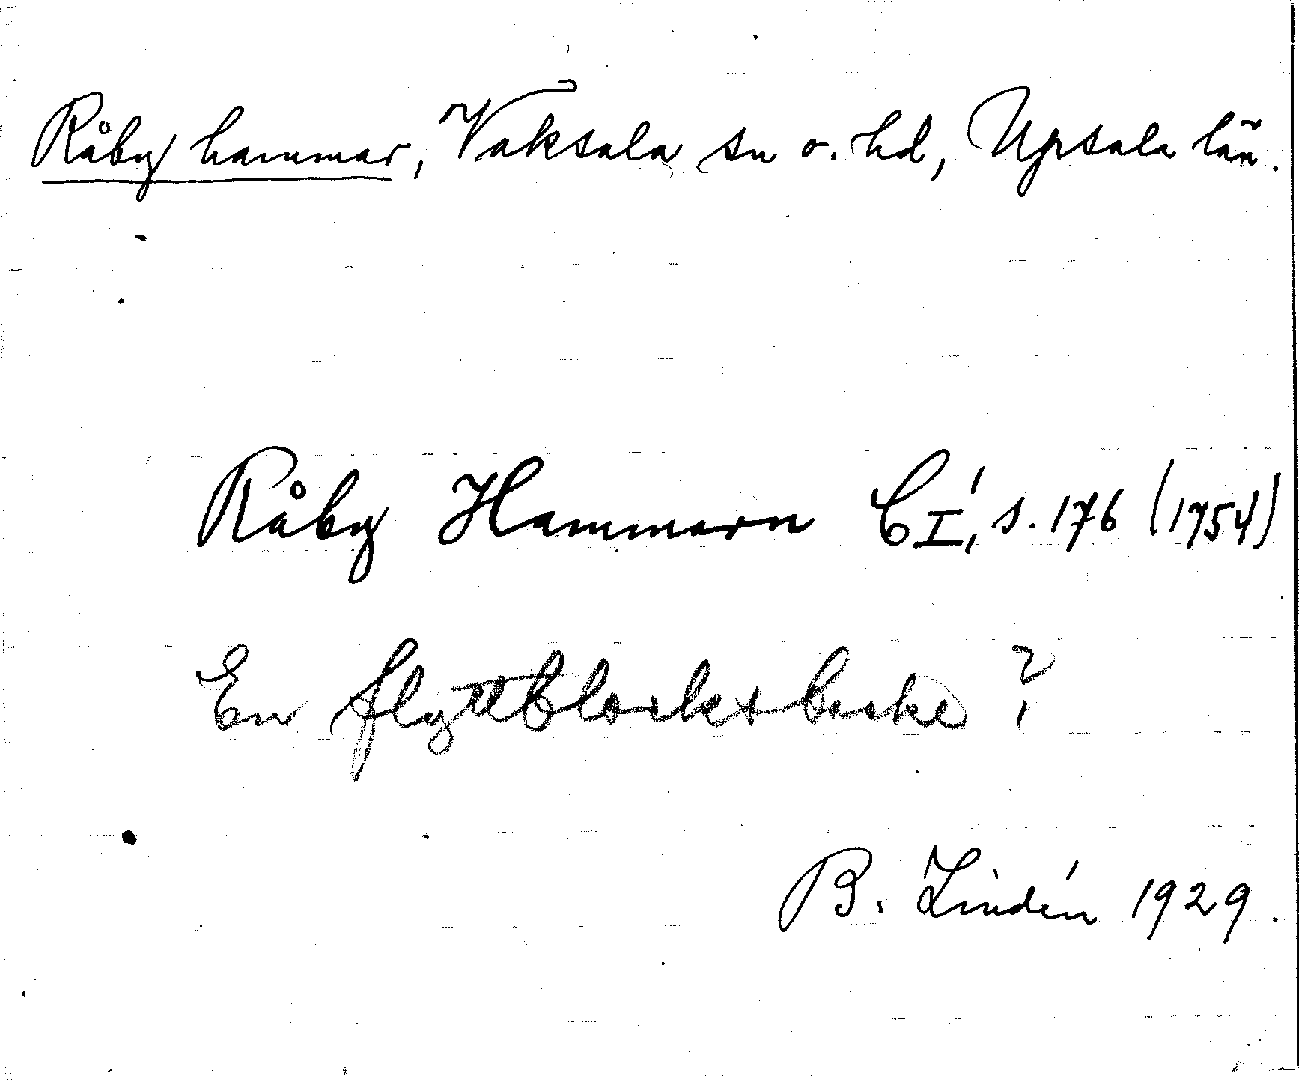 Råby hammar, Vaksala sn o. hd, Upsala län.
Råby Hammarn C I, s. 176 (1754)
En flyttblocksbacke?
B. Lindén 1929.